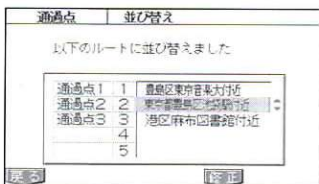 通過点 並び替え
以下のルートに並び替えました
通過点1 1 豊島区東京音楽大付近
通過点2 2 東京都豊島区池袋駅付近
通過点3 3 港区麻布図書館付近
4
5
戻る 修正